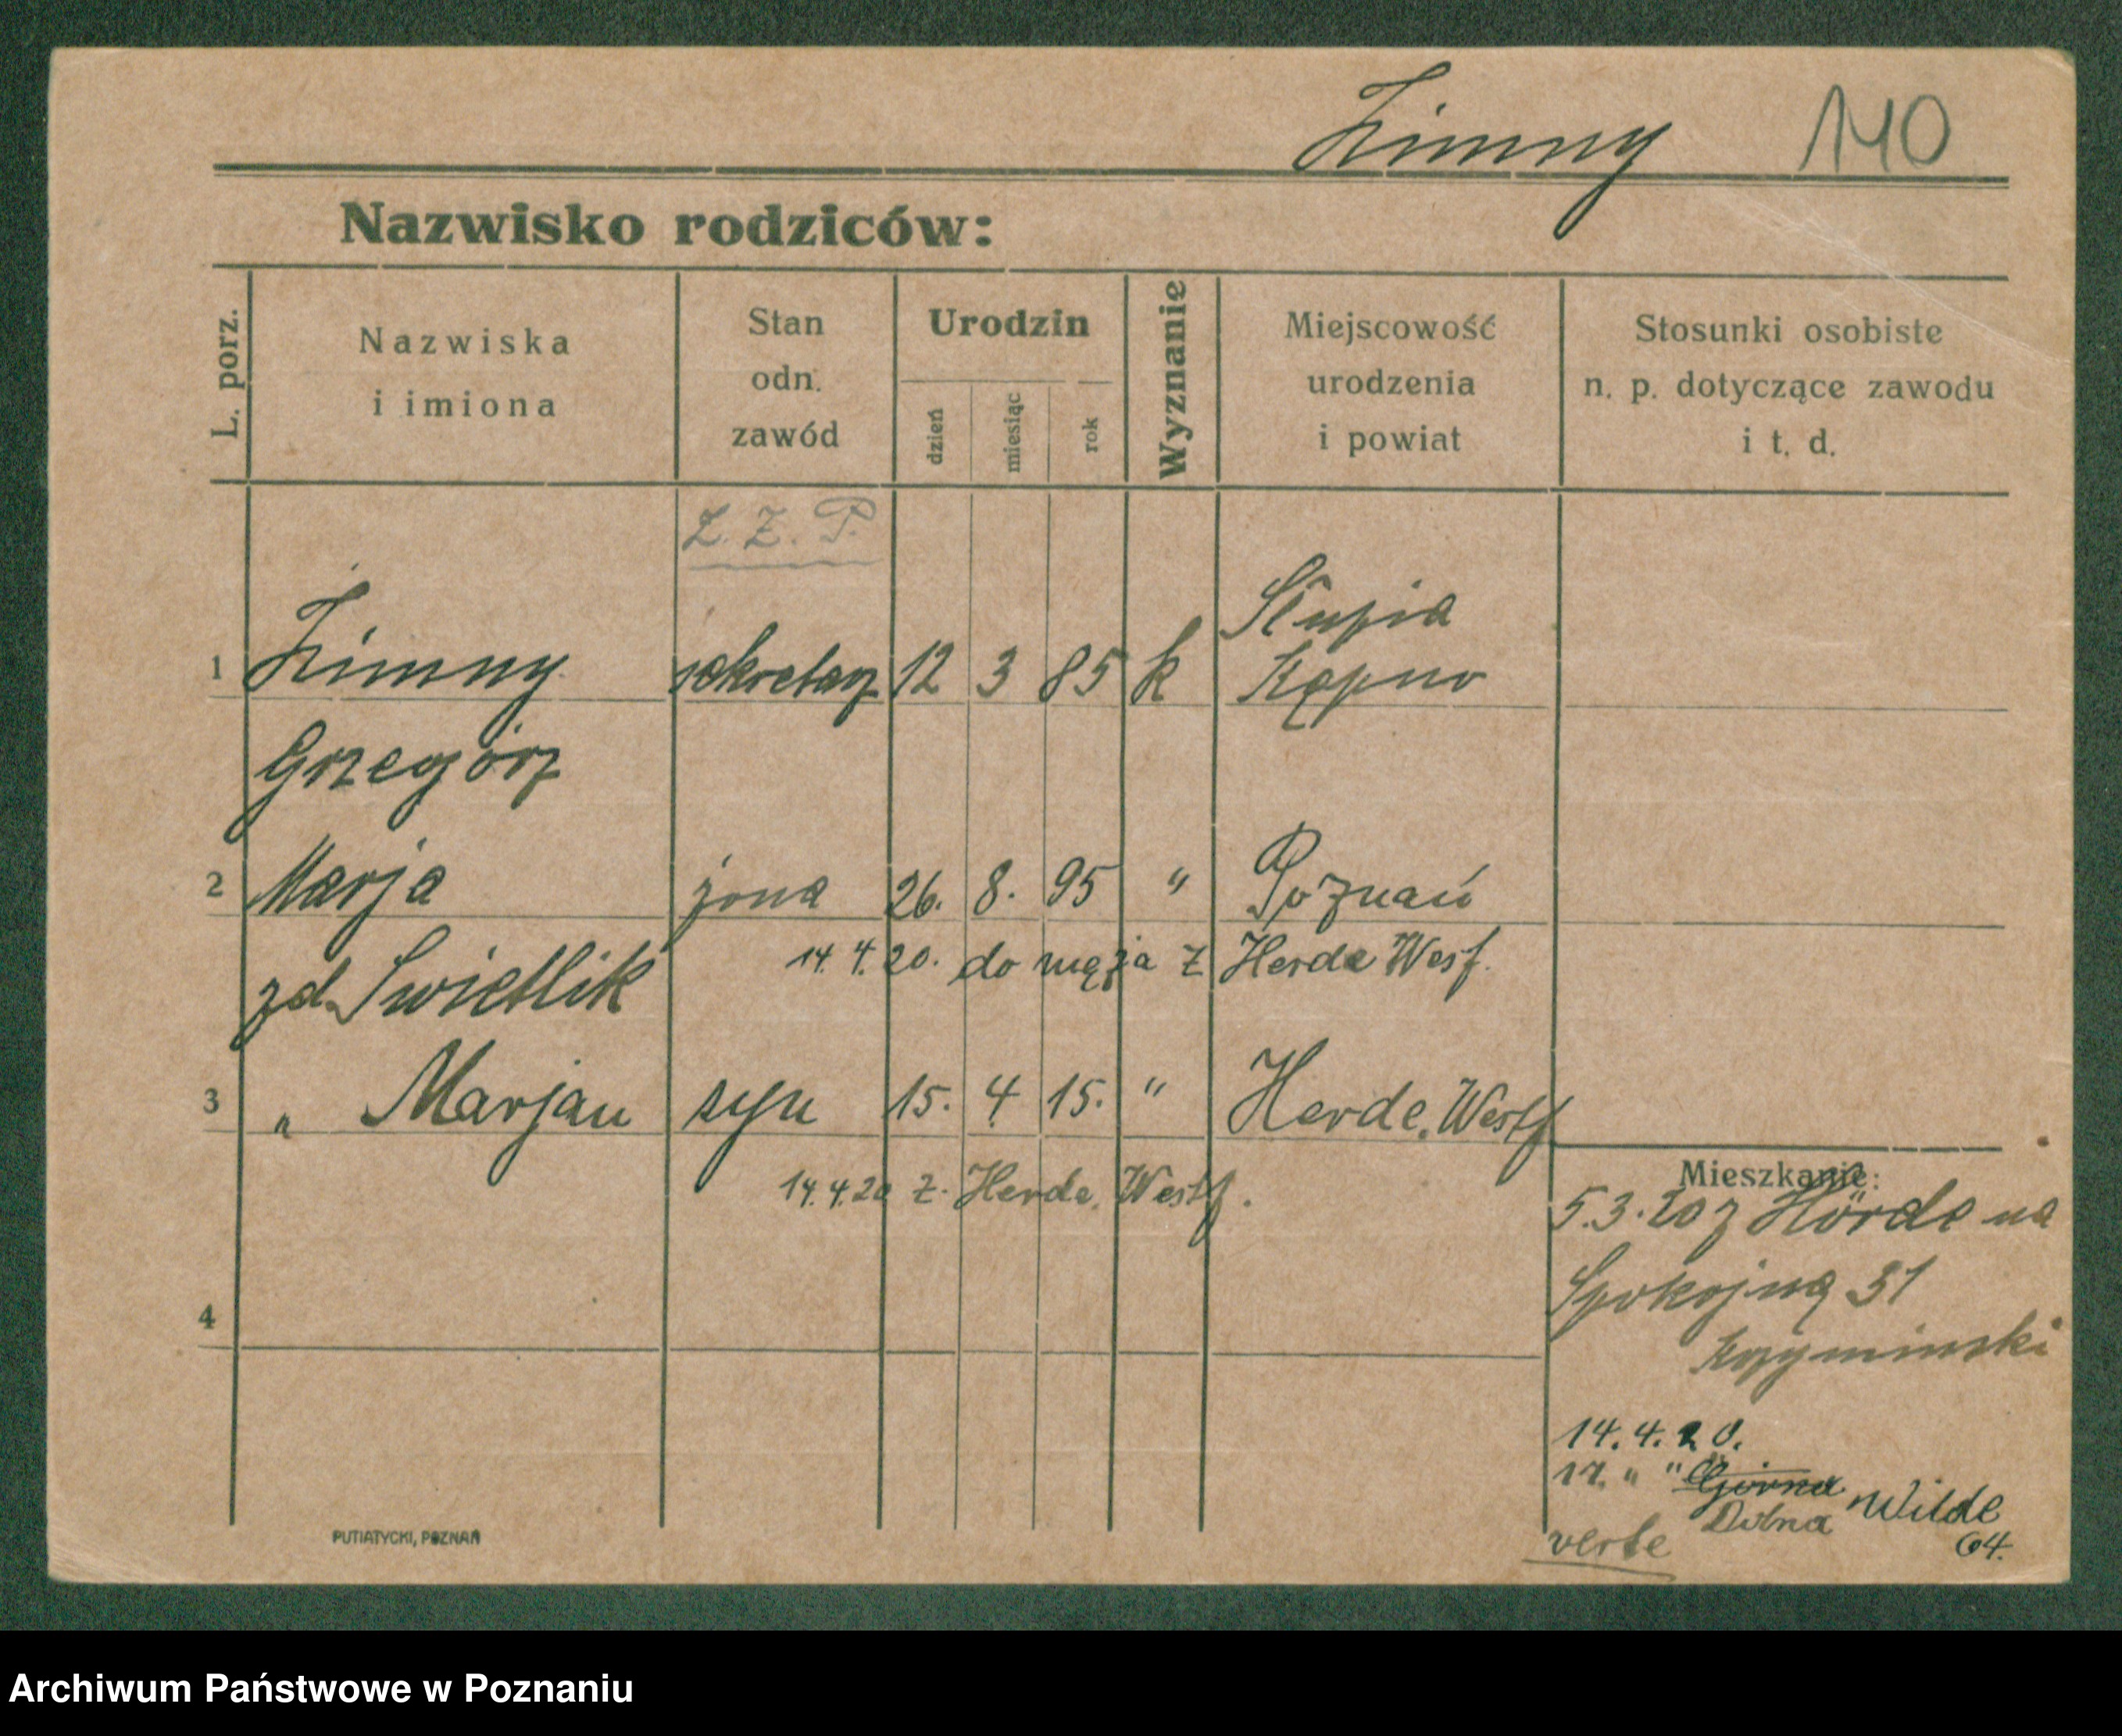 Zimny 140
Nazwisko rodziców:
L. porz.
Nazwiska
i imiona
Stan
odn.
zawód
Urodzin
dzień
miesiąc
rok
Wyznanie
Miejscowość
urodzenia
i powiat
Stosunki osobiste
n. p. dotyczące zawodu
i t. d.
Z. Z. P.
Słupia
1 Zimny sekretarz 12 3 85 k Kępno
Grzegórz
2 Marja żona 26. 8. 95 " Poznań
zd. Swietlik 14. 4. 20. do męża z Herde Westf.
3 " Marjan syn 15. 4 15. " Herde, Westf
14. 4. 20 z. Herde, Westf.
4
Mieszkanie:
5. 3. 20 z Hörde na
Spokojną 31
14. 4. 20.
17. " " Górna Wilde
Dolna 64.
verte
PUTIATYCKI, POZNAŃ
Archiwum Państwowe w Poznaniu